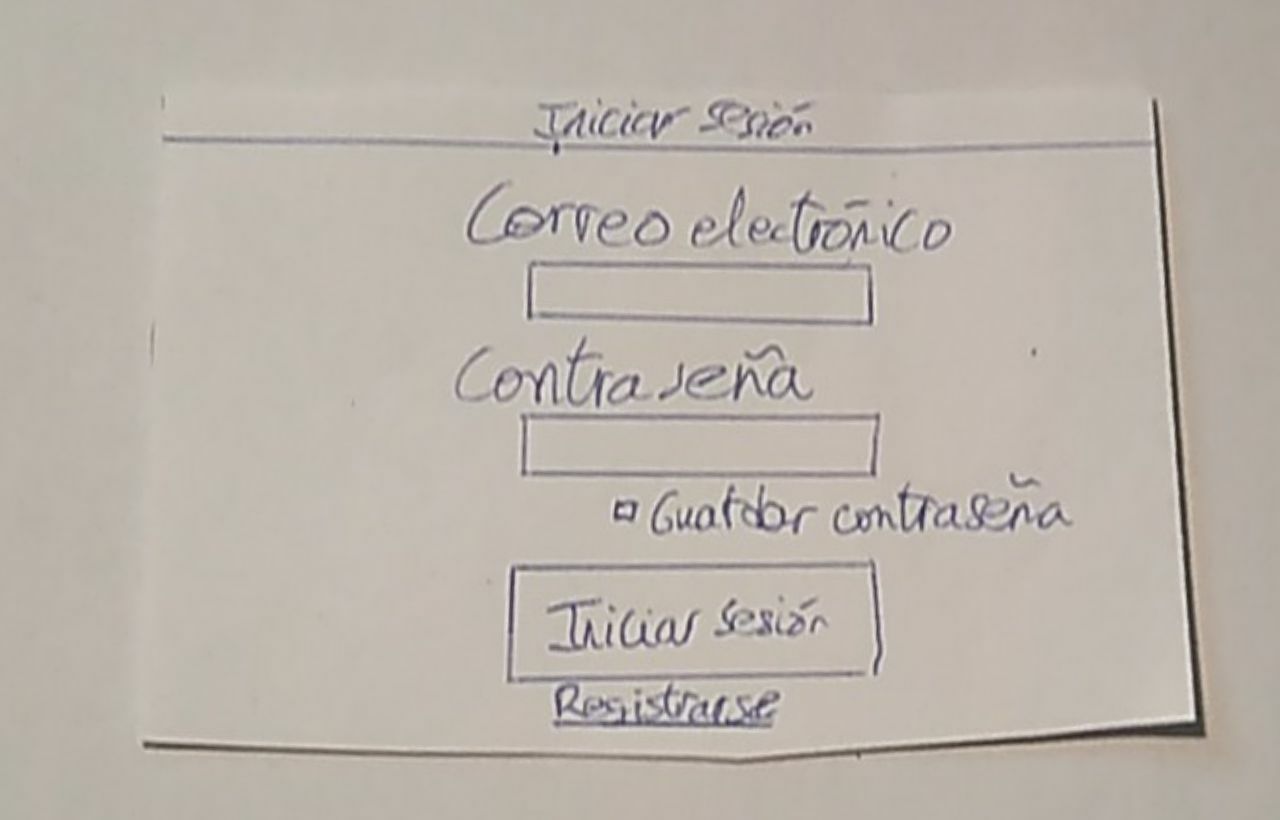 Iniciar sesión
Correo electrónico
Contraseña
Guardar contraseña
Iniciar sesión
Registrarse